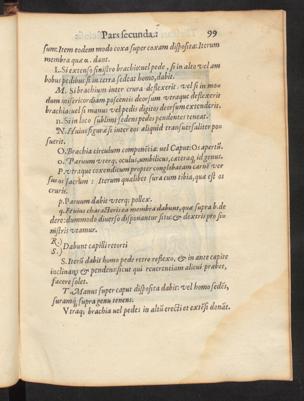 Pars secunda: 99
sum: Item eodem modo coxa super coxam disposita: Iterum
membra quæ a. dant.
L. Si extenso sinistro brachio: uel pede, si in alto uel am
bobus pedibus si in terra sedeat homo, dabit.
M. Si brachium inter crura desflexerit: uel si in mo
dum misericordiam poscentis deorsum utraque desflexerit
brachia: uel si manus uel pedis digitos deorsum extenderit.
n. Si in loco sublimi sedens pedes pendentes teneat.
N. Huius figura si inter eos aliquid transuersaliter po
suerit.
O. Brachia circulum componētia: uel Caput: Os apertū.
o. Paruum uterque, oculus, umbilicus, cæteraque id genus.
P. utraque coxendicum propter complebatam carnē uer
sus os sacrum: Iterum qualibet sura cum tibia, quæ est os
cruris.
p. Paruum dabit uterque pollex.
q. Eiusdem characteris ea membra dabunt, quæ supra b. de
dere: dummodo diuerso disponantur situ: & dextris pro si
nistris utamur.
R.)
S.) Dabunt capilli retorti
S. Iterū dabit homo pede retro reflexo, & in ante capite
inclinans & pendens sicut qui reuerentiam alicui præbet,
facere solet.
T. Manus super caput disposita dabit: uel homo sedēs,
suramque supra genu tenens.
Vtraque brachia uel pedes in altū erecti et extēsi donāt.